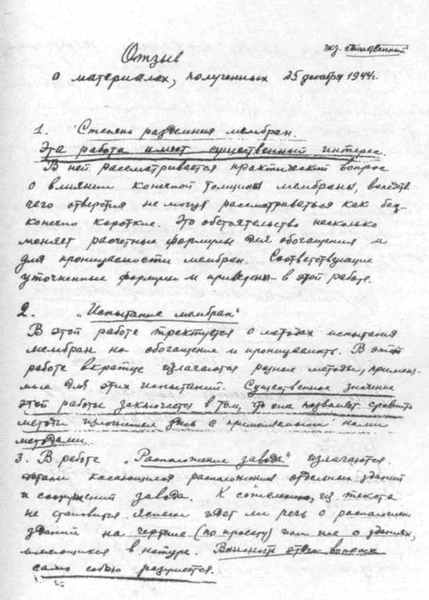 Отзыв
экз. единственный
о материалах, полученных 25 декабря 1944г.
1. Степень разделения мембран.
Эта работа имеет существенный интерес.
В ней рассматривается практический вопрос
о влиянии конечной толщины мембраны, вследств.
чего отверстия не могут рассматриваться как бес-
конечно короткие. Это обстоятельство несколько
меняет расчетные формулы для обогащения и
для проницаемости мембран. Соответствующие
уточненные формулы и приведены в этой работе.
2. „Испытание мембран"
В этой работе трактуется о методах испытания
мембран на обогащение и проницаемость. В этой
работе вкратце излагаются разные методы, применя-
мые для этих испытаний. Существенное значение
этой работы заключается в том, что она позволяет сравнить
методы изложенные здесь с применяемыми нами
методами.
3. В работе „Расположение завода" излагаются
детали касающиеся расположения отдельных зданий
и сооружений завода. К сожалению, из текста
не становится ясным идет ли речь о расположении
зданий на чертеже (по проекту) или же о зданиях,
имеющихся в натуре. Важность этого вопроса
сама собою разумеется.